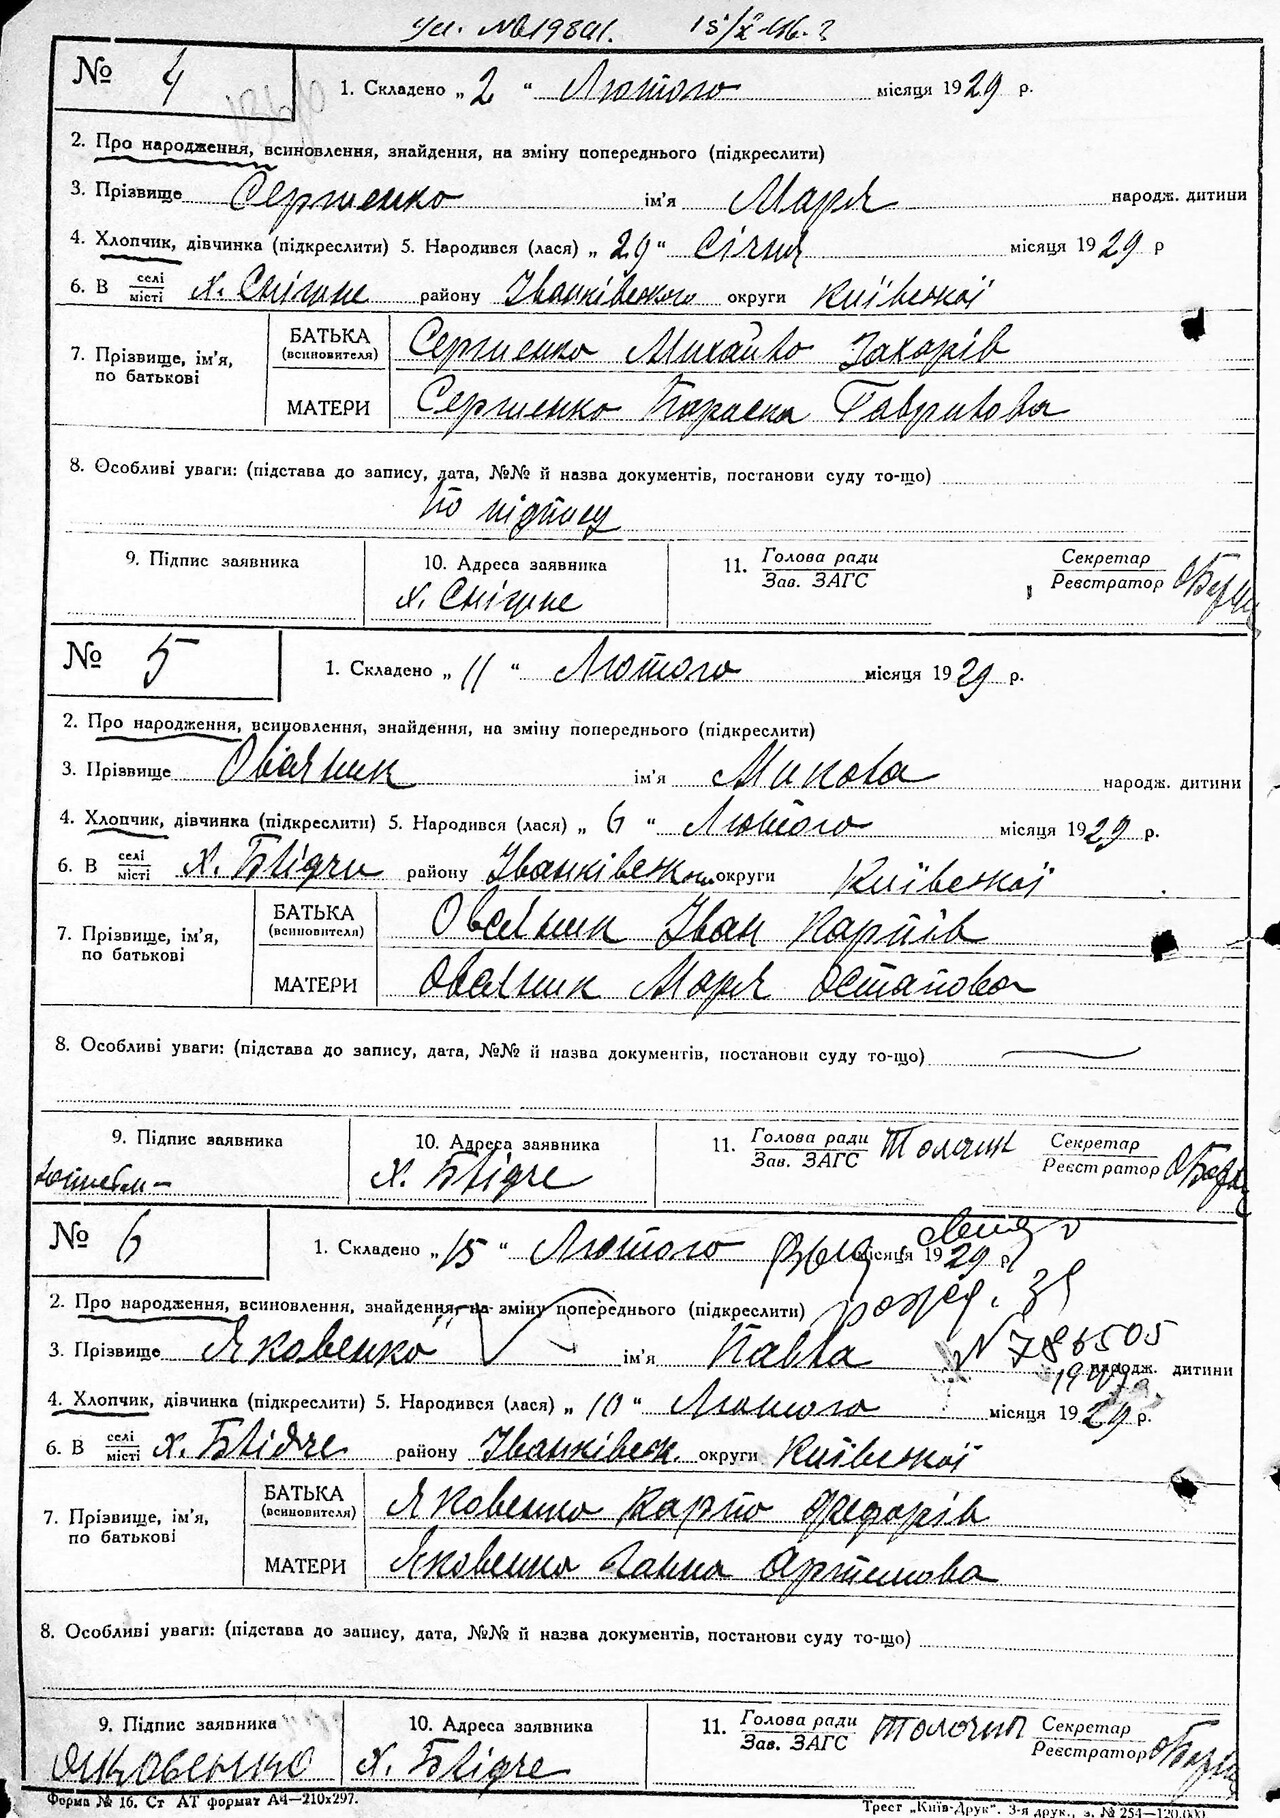 15/X 46 г.
№ 4
1. Складено „ 2 “ Лютого місяця 1929 р.
2. Про народження, всиновлення, знайдення, на зміну попереднього (підкреслити)
3. Прізвище Сергиенко ім'я Марія народж. дитини
4. Хлопчик, дівчинка (підкреслити) 5. Народився (лася) „ 29 “ Січня місяця 1929 р
6. В селі/місті х. Снігине району Іванківського округи Київської
7. Прізвище, ім'я, по батькові
БАТЬКА (всиновителя) Сергиенко Михайло Захарів
МАТЕРИ Сергиенко Параска Гаврилова
8. Особливі уваги: (підстава до запису, дата, №№ й назва документів, постанови суду то-що)
по підпису
9. Підпис заявника 10. Адреса заявника 11. Голова ради/Зав. ЗАГС Секретар/Реєстратор
х. Снігине
№ 5
1. Складено „ 11 “ Лютого місяця 1929 р.
2. Про народження, всиновлення, знайдення, на зміну попереднього (підкреслити)
3. Прізвище Овсяник ім'я Микола народж. дитини
4. Хлопчик, дівчинка (підкреслити) 5. Народився (лася) „ 6 “ Лютого місяця 1929 р.
6. В селі/місті х. Блідчи району Іванківськ округи Київської
7. Прізвище, ім'я, по батькові
БАТЬКА (всиновителя) Овсяник Іван Карпів
МАТЕРИ Овсяник Марія Остапова
8. Особливі уваги: (підстава до запису, дата, №№ й назва документів, постанови суду то-що)
9. Підпис заявника 10. Адреса заявника 11. Голова ради/Зав. ЗАГС Толочин Секретар/Реєстратор
х. Блідче
№ 6
1. Складено „ 15 “ Лютого місяця 1929 р.
2. Про народження, всиновлення, знайдення, на зміну попереднього (підкреслити)
3. Прізвище Яковенко ім'я Павла № 786505 народж. дитини
4. Хлопчик, дівчинка (підкреслити) 5. Народився (лася) „ 10 “ Лютого місяця 1929 р.
6. В селі/місті х. Блідче району Іванківськ. округи Київської
7. Прізвище, ім'я, по батькові
БАТЬКА (всиновителя) Яковенко Карпо Федорів
МАТЕРИ Яковенко Ганна Артемова
8. Особливі уваги: (підстава до запису, дата, №№ й назва документів, постанови суду то-що)
9. Підпис заявника 10. Адреса заявника 11. Голова ради/Зав. ЗАГС Толочин Секретар/Реєстратор
Яковенко х. Блідче
Форма № 16. Ст АТ формат А4—210х297. Трест „Київ-Друк“. 3-я друк., з. № 254—120.000